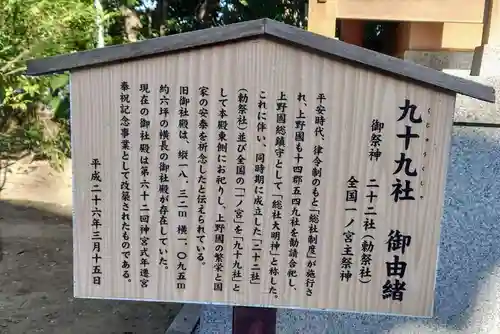 九十九社 御由緒
くじゅうくしゃ
御祭神 二十二社（勅祭社）
全国一ノ宮主祭神
平安時代、律令制のもと「総社制度」が施行さ
れ、上野国も十四郡五四九社を勧請合祀し、
上野国総鎮守として「総社大明神」と称した。
これに伴い、同時期に成立した「二十二社」
（勅祭社）並び全国の「一ノ宮」を「九十九社」と
して本殿東側にお祀りし、上野国の繁栄と国
家の安泰を祈念したと伝えられている。
旧御社殿は、縦一八・三二m 横一・〇九五m
約六坪の横長の御社殿が存在していた。
現在の御社殿は第六十二回神宮式年遷宮
奉祝記念事業として改築されたものである。
平成二十六年三月十五日